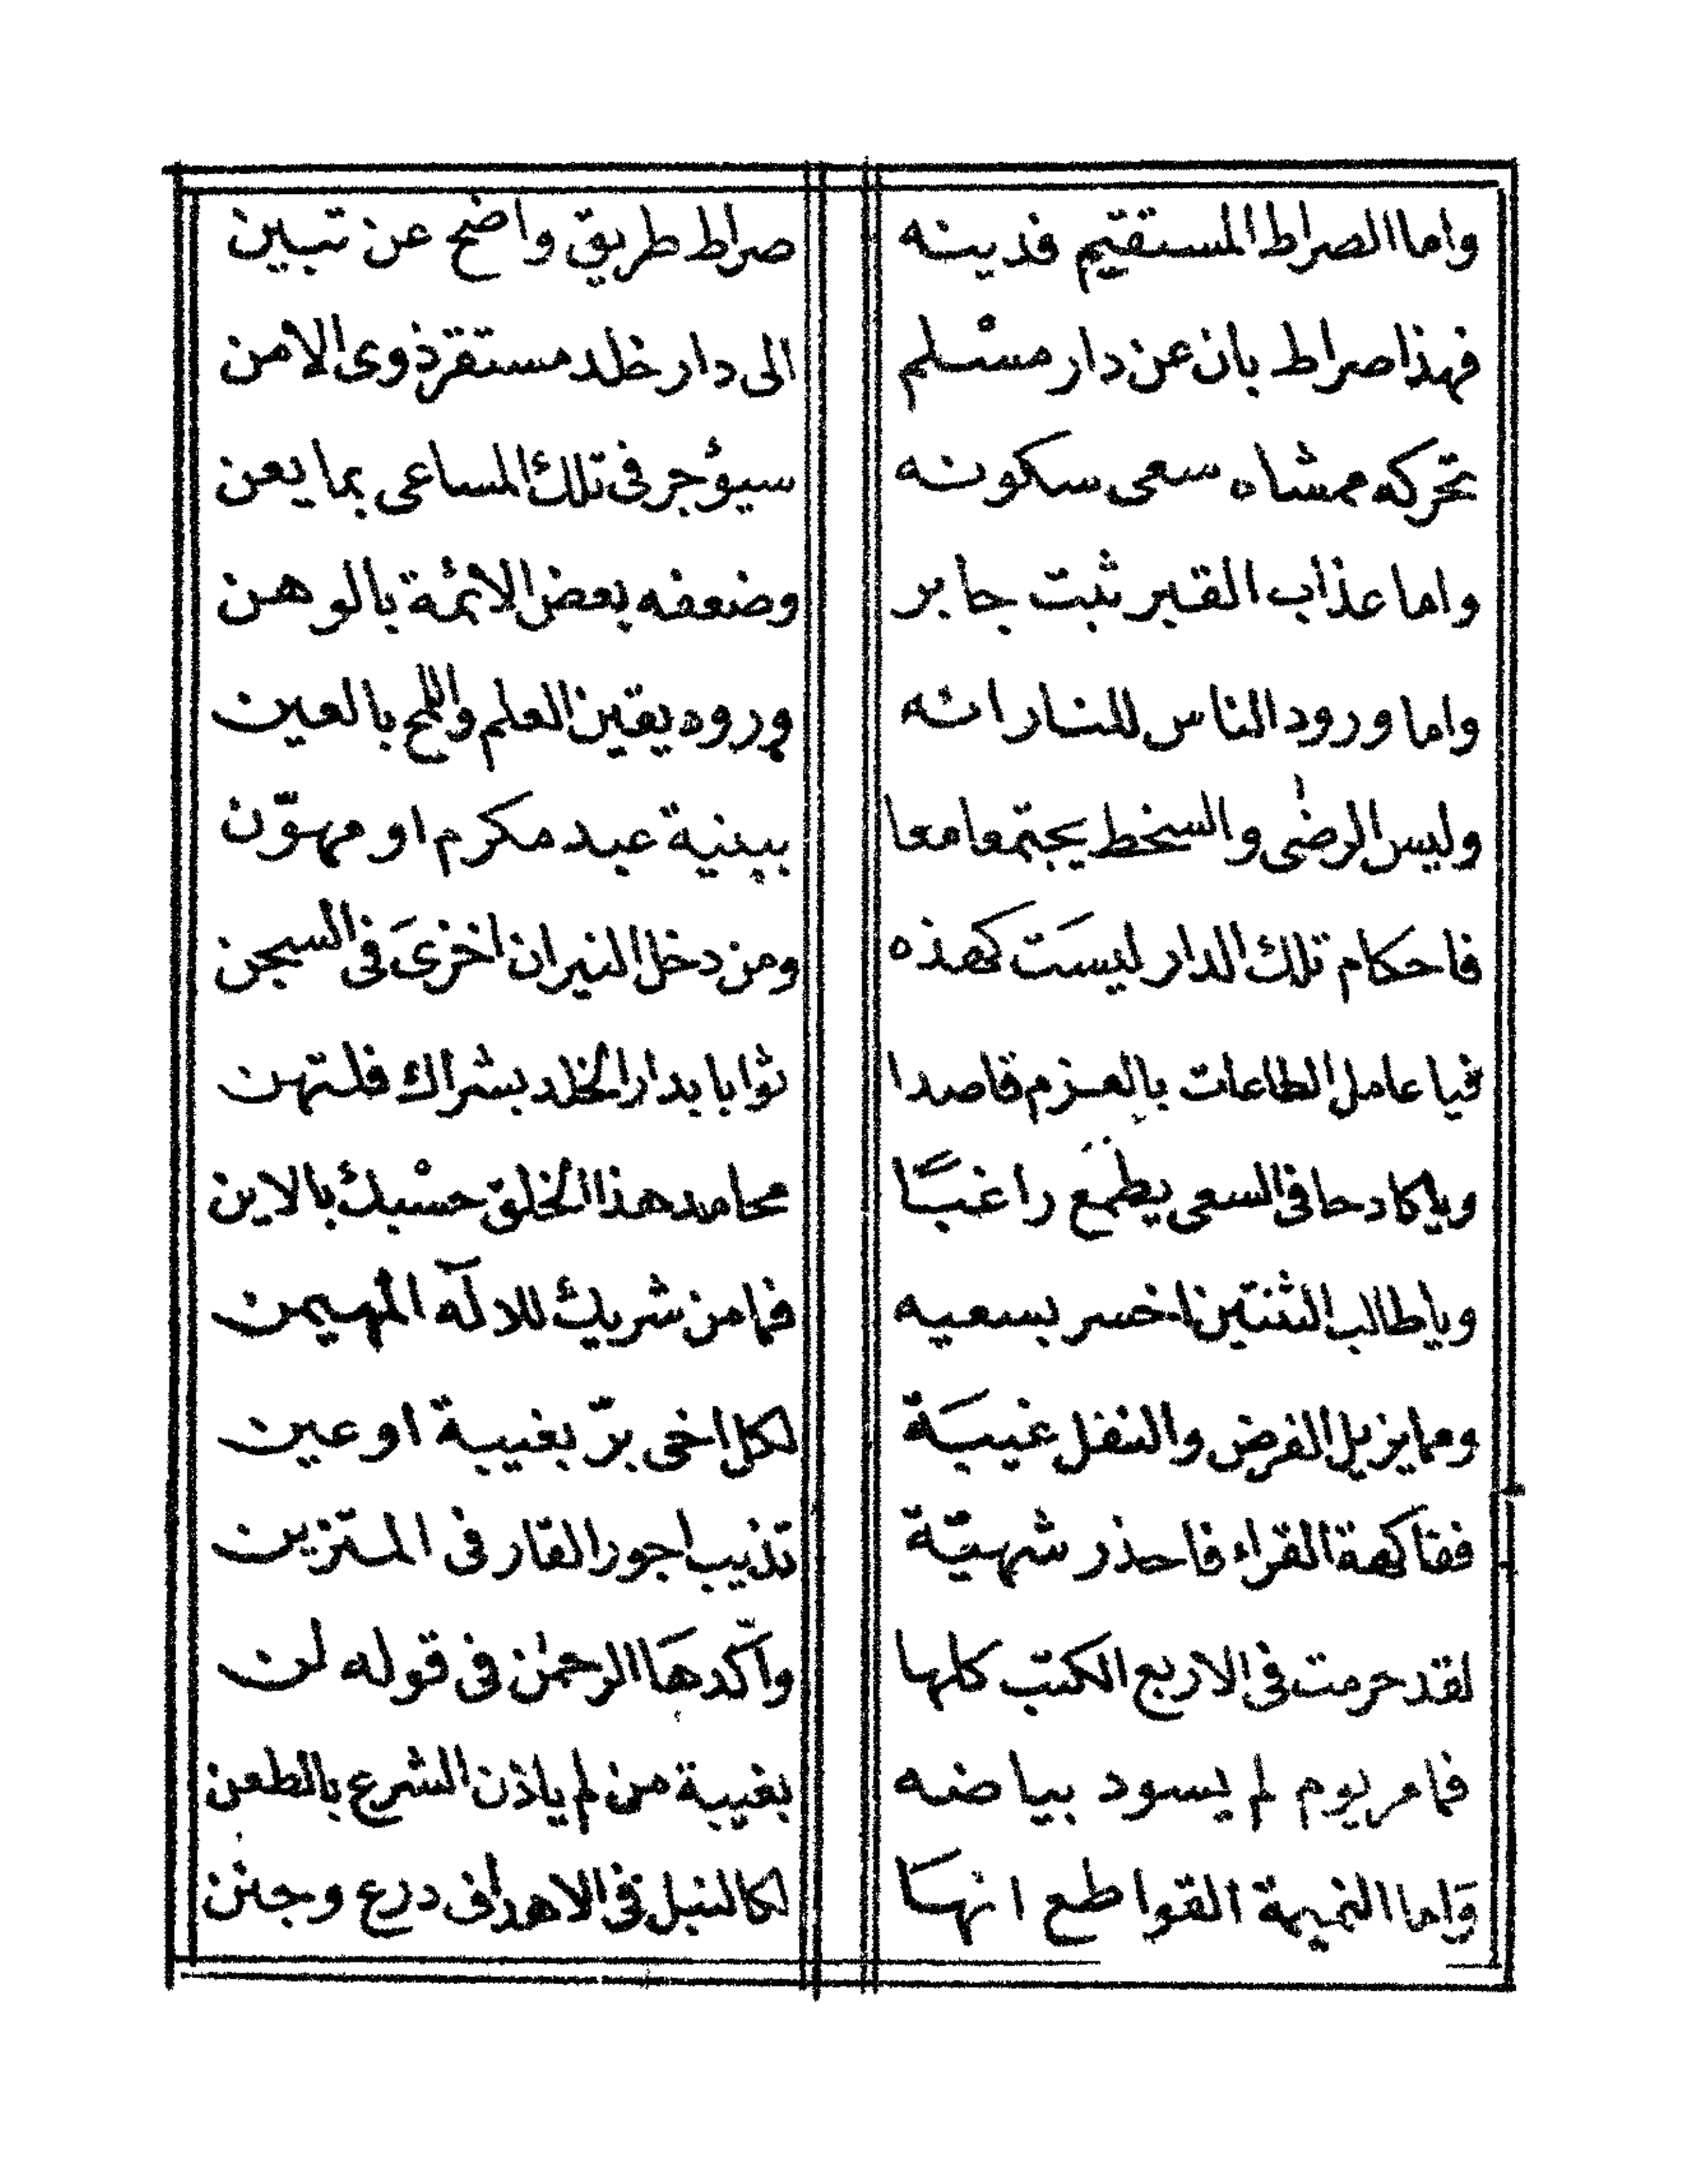 واما الصراط المستقيم فدينه صراط طريق واضح عن تبيين
فهذا صراط بان عن دار مسْلم الى دار خلد مستقر ذوى الامن
تحركه ممشاه سعى سكونه سيؤجر فى تلك المساعى بما يعن
واما عذاب القبر ثبت جابر وضعفه بعض الائمة بالوهن
واما ورود الناس للنار انه وروه يقين العلم واللمح بالعين
وليس الرضى والسخط يجتمعا معا ببنية عبد مكرم او مهوّن
فاحكام تلك الدار ليسَت كهذه ومن دخل النيران اخزىَ فى السجن
فيا عامل الطاعات بالعزم قاصدا ثوابا بدار الخلد بشراك فلتهن
ويا كادحا فى السعى يطمع راغبًا محامد هذا الخلق حسْبك بالاين
ويا طالب الثنتين اخسر بسعيه فما من شريك للاله المهيمن
ومما يزيل الفرض والنفل غيبَة لكل اخى برّ بغيبة او عين
ففاكهة القراء فاحذر شهيّة تذيب اجور القار فى المتزين
لقد حرمت فى الاربع الكتب كلها واكّدهَا الرحمٰن فى قوله لن
فما مر يوم لم يسود بياضه بغيبة من لم ياذن الشرع بالطعن
وَاما النميمة القواطع انهَا لكالنبل فى الاهداف درع وجنن